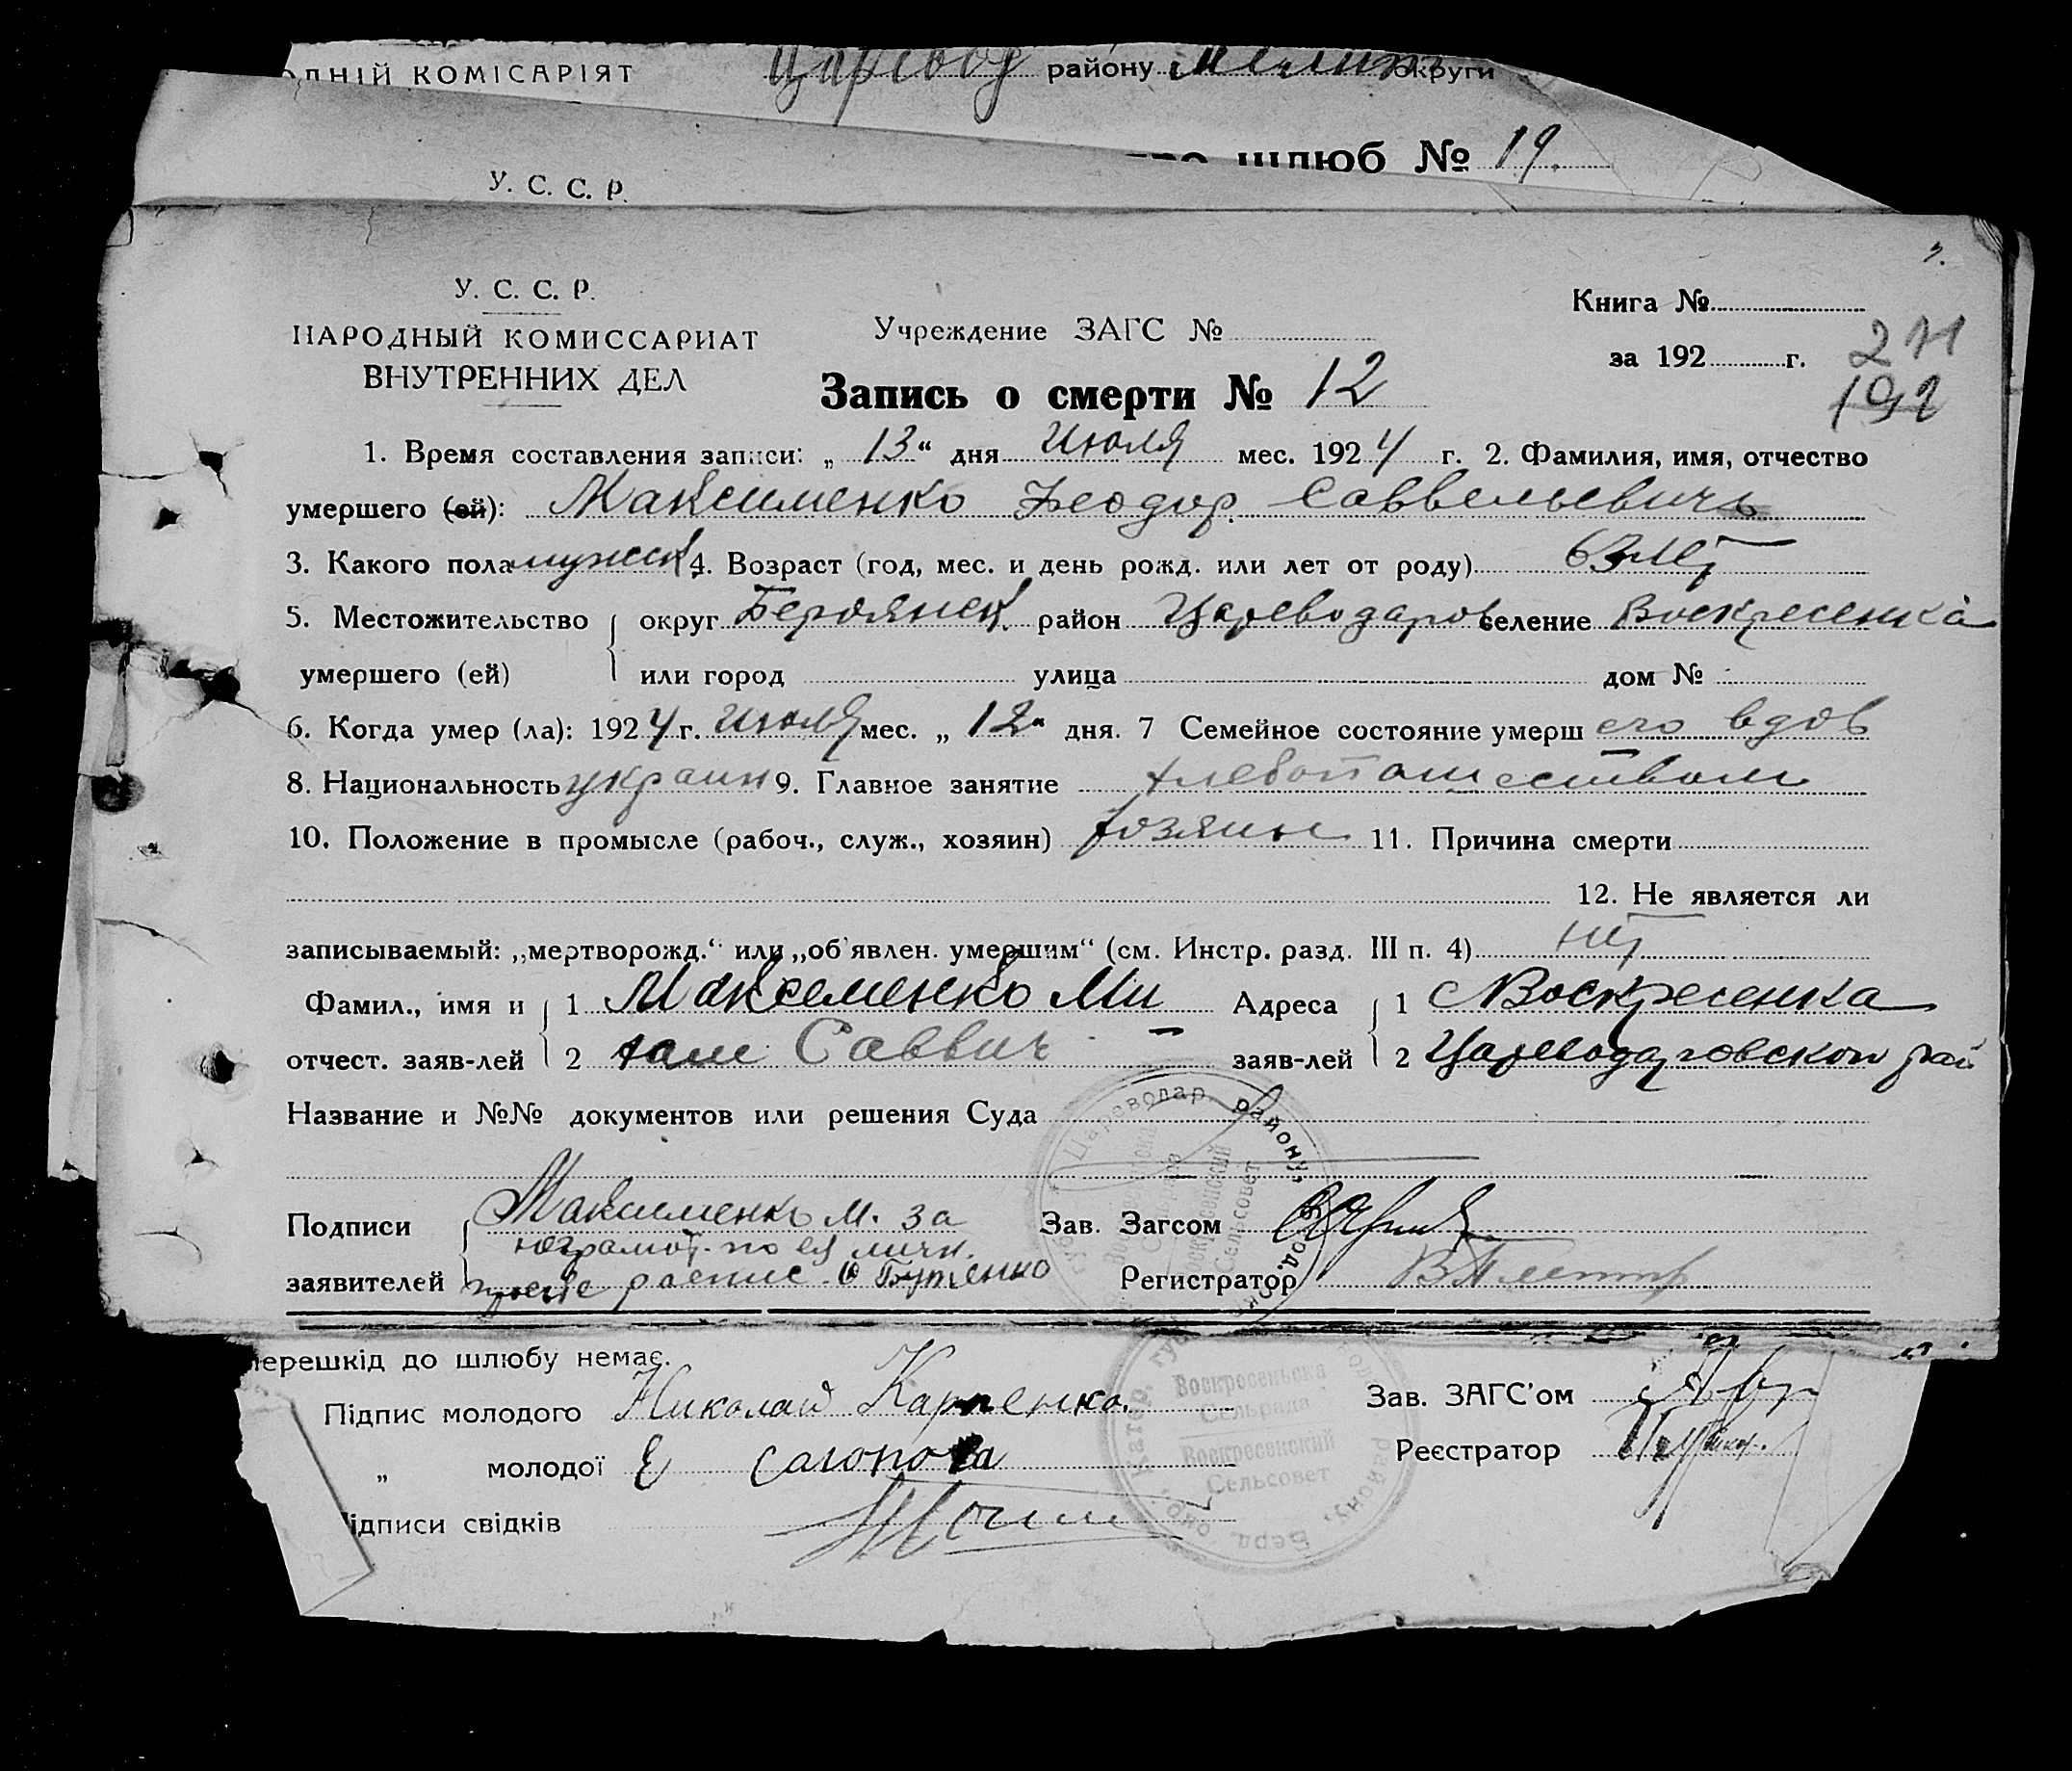 ОДНІЙ КОМІСАРІЯТ Царевод району Мелит округи
шлюб № 19.
У. С. С. Р.
У. С. С. Р.
НАРОДНЫЙ КОМИССАРИАТ
ВНУТРЕННИХ ДЕЛ
Учреждение ЗАГС №
Книга №
за 192 г.
Запись о смерти № 12
1. Время составления записи: „ 13 “ дня Июля мес. 1924 г. 2. Фамилия, имя, отчество
умершего (ей): Максименко Феодор Саввельевичъ
3. Какого пола мужск 4. Возраст (год, мес. и день рожд. или лет от роду) 63 лет
5. Местожительство округ Бердянск. район Цареводаров селение Воскресенка
умершего (ей) или город улица дом №
6. Когда умер (ла): 1924 г. Июля мес. „ 12 “ дня. 7 Семейное состояние умерш его вдов
8. Национальность украин 9. Главное занятие хлебопашеством
10. Положение в промысле (рабоч., служ., хозяин) хозяин 11. Причина смерти
12. Не является ли
записываемый: „мертворожд.“ или „об'явлен. умершим“ (см. Инстр. разд. III п. 4) нет
Фамил., имя и 1 Максеменко Ми Адреса 1 Воскресенка
отчест. заяв-лей 2 Саввич заяв-лей 2 Цареводаровском рай
Название и №№ документов или решения Суда
Подписи Максименко М. за Зав. Загсом
неграмот. по ея личн.
заявителей просьбе распис. Бутенко Регистратор
Цареводар. району,
Сельсовет
перешкід до шлюбу немає.
Підпис молодого Николай Карпенко. Зав. ЗАГС'ом
„ молодої Е Сагонова Реєстратор
ідписи свідків
Воскресеньска
Сельрада
Воскресенский
Сельсовет
Катер. гу
району, Берд. окр.